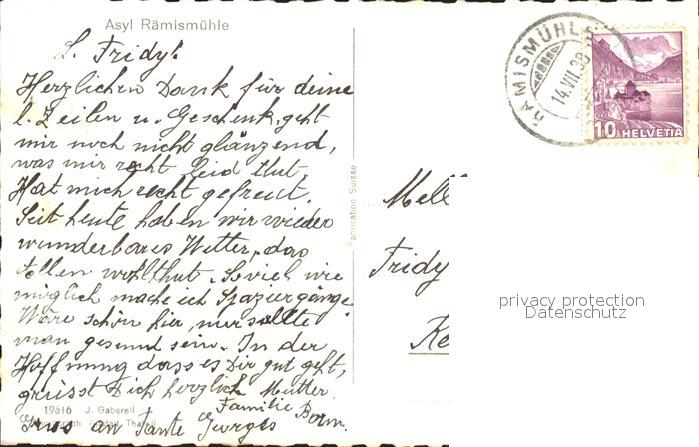 Asyl Rämismühle
L. Fridy!
Herzlichen Dank für deine
l. Zeilen u. Geschenk, geht
mir noch nicht glänzend,
was mir recht leid thut.
Hat mich recht gefreut.
Seit heute haben wir wieder
wunderbares Wetter, das
allen wohlthut. Soviel wie
möglich mache ich Spaziergänge.
Wäre schön hier, nur sollte
man gesund sein. In der
Hoffnung dass es Dir gut geht,
grüsst Dich herzlich Mutter.
Familie Born.
Gruss an Tante Georges
19816 J. Gaberell
Thalwil
Fabrication Suisse
RÄMISMÜHLE
14.VII.38
10 HELVETIA
Mell
Fridy
Re
privacy protection
Datenschutz